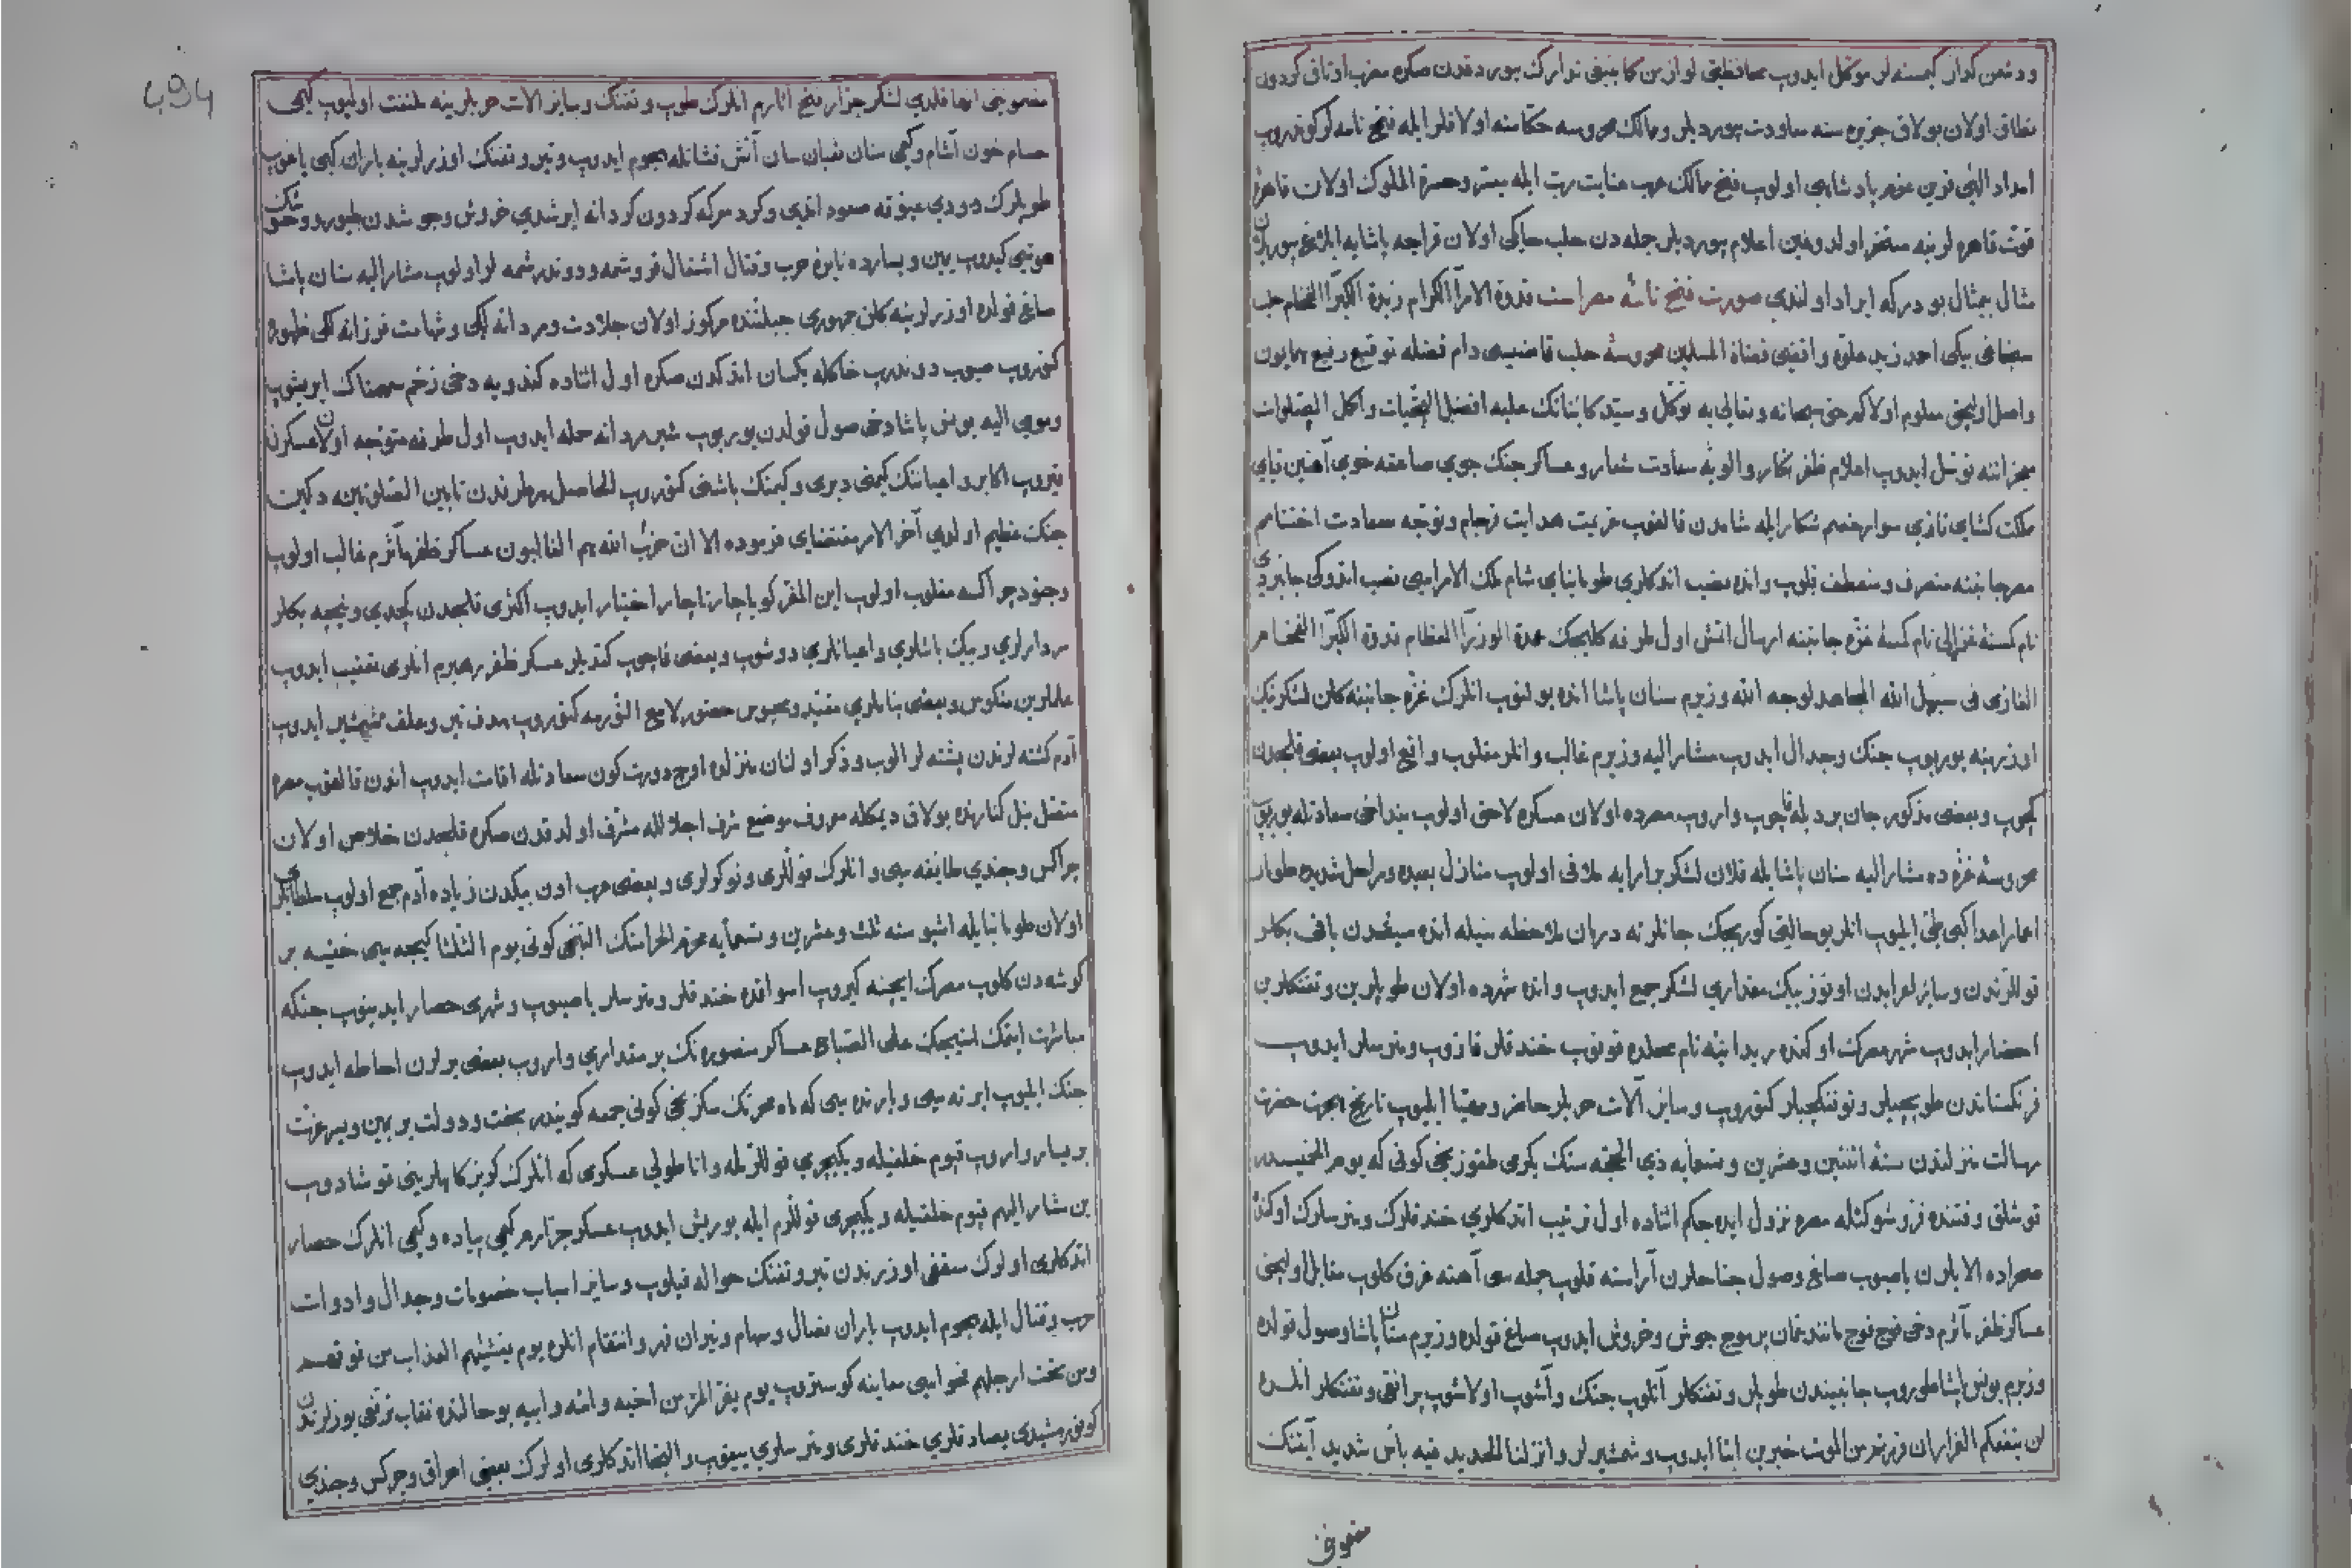 ودشمن كداز كيمسنه لر موكل ايدوب محافظتى لوازمن كما ينبغى تدارك بيوردقدن صكره مضرب اوتاق كردون
نطاق اولان بولاق جزيره سنه معاودت بيورديلر وممالك محروسه حكامنه اولاقلر ايله فتح نامه لر كوندروب
امداد الهى قرين عزم پادشاهى اولوب فتح ممالك عرب عنايت رب ايله ميسر وحسرة الملوك اولان قاهره
قوت قاهره لرينه مسخر اولدوغين اعلام بيورديلر جمله دن حلب حاكمى اولان قراجه پاشايه ابلاغ بيوريلان
مثال بيمثال بو درر كه ايراد اولندى صورت فتح نامه مصراست قدوة الامرآ الكرام زبدة الكبرآ الفخام حلب
سنجاغى بيكى احمد زيد علوه واقضى قضاة المسلمين محروسه حلب قاضيسى دام فضله توقيع رفيع همايون
واصل اوليجق معلوم اولا كه حق سبحانه وتعالى يه توكل وسيد كائناتك عليه افضل التحيات واكمل الصلوات
معجزاتنه توسل ايدوب اعلام ظفر نكار والويه سعادت شعار وعساكر جنك جوى صاعقه خوى آهنين قباى
مملكت كشاى تازى سوار خصم شكار ايله شامدن قالقوب عزيمت هدايت فرجام وتوجه سعادت اختتامم
مصر جانبنه منصرف ومنعطف قلوب وانده نصب اتدكلرى طومانباى شام ملك الامراسى نصب اتدوكى جانبردى
نام كسنه غزالى نام كسنه غزه جانبنه ارسال اتمش اول طرفه كليجك عمدة الوزرآ العظام قدوة الكبرآ الفخام
الغازى فى سبيل الله المجاهد لوجه الله وزيرم سنان پاشا انده بولنوب انلرك غزه جانبنه كلن لشكرينك
اوزرينه يوريوب جنك وجدال ايدوب مشار اليه وزيرم غالب وانلر مغلوب واقع اولوب بعضى قلجدن
كچوب وبعضى مذكور جانبردى يله قاچوب واروب مصرده اولان عسكره لاحق اولوب بنداخى سعادتله يوريوب
محروسه غزه ده مشار اليه سنان پاشايله قلان لشكر جرارايه ملاقى اولوب منازل بعيده ومراحل شديده طومار
اعمار اعدا كبى طى ايليوب انلر بو حالتى كوريجك جانلرنه درمان ملاحظه سيله انده سيفدن باقى بكلر
قوللرندن وساير لعرابدن اوتوز بيك مقدارى لشكر جمع ايدوب وانده شهرده اولان طوپلرين وتفنكلرين
احضار ايدوب شهر مصرك اوكنده ريدانيه نام محلده قونوب خندقلر قازوب ومترسلر ايدوب
فرنكستاندن طوپچيلر وتوفنكچيلر كتوروب وساير آلات حربلر حاضر ومهيا ايليوب تاريخ هجرت حضرت
رسالت منزلندن سنه اثنتين وعشرين وتسعمايه ذى الحجه سنك يكرمى طقوزنجى كونى كه يوم الخميسدر
قوشلق وقتنده فر وشوكتله مصره نزول ايده جكم اثناده اول ترتيب اتدكلرى خندقلرك ومترسلرك اوكنده
صحراده الايلرن باصوب صاغ وصول جناحلرن آراسته قلوب جمله سى آهنه غرق كلوب مقابل اوليجق
عساكر ظفر مآثرم دخى فوج فوج مانند عمان پر موج جوش وخروش ايدوب صاغ قولده وزيرم سنان پاشا وصول قولده
وزيرم يونس پاشا طوروب جانبيندن طوپلر وتفنكلر آتلوب جنك وآشوب اولاشوب پر افق وتفنكلر انلره
لن ينفعكم الفرار ان فررتم من الموت خبرين انبا ايدوب وشمشيرلر وانزلنا الحديد فيه باس شديد آيتنك
مضمونى
494
مضمونى انها قلدى لشكر جرار فتح آثارم انلرك طوپ وتفنك وساير الات حربلرينه ملتفت اولميوب كيمى
حسام خون آشام وكيمى سنان ثعبان سان آتش نشانله هجوم ايدوب وتير وتفنك اوزرلرينه باران كبى ياغوب
طوپلرك دودى عيوقه صعود اتدى وكرد معركه كردون كردانه ايرشدى خروش وجوشدن طيور ووحشك
هوشى كيدوب يمين ويسارده نايره حرب وقتال اشتعال قروشمه ودوندرشمه لر اولوب مشار اليه سنان پاشا
صاغ قولده اوزرلرينه كلن جمهورى جبلتنده مركوز اولان جلادت ومردانه لكى وشهامت فرزانه لكى ظهوره
كتوروب صيوب دوندرب خاكله يكسان اتدكدن صكره اول اثناده كندويه دخى زخم سهمناك ايريشوب
ومومى اليه يونس پاشا دخى صول قولدن يوريوب شير مردانه حمله ايدوب اول طرفه متوجه اولان عسكرن
قيروب اكابر واعياننك كيمنى ديرى وكيمنك باشنى كتوروب الحاصل هر طرفدن تا بين الصلوتينه دكين
جنك عظيم اولدى آخر الامر مقتضاى فرموده الا ان حزب الله هم الغالبون عساكر ظفر مآثرم غالب اولوب
وجنود چراكسه مغلوب اولوب اين المفر كويا چار ناچار اختيار ايدوب اكثرى قلجدن كچدى ونيجه بكلر
سردارلرى وبيك باشلرى واعيانلرى دوشوب وبعضى قاچوب كتديلر عسكر ظفر رهبرم انلرى تعقيب ايدوب
علملرين منكوس وبعضى بنانلرى مقيد ومحبوس حضور لامع النورمه كتوروب هدف تير وعلف شمشير ايدوب
آدم كشته لرندن پشته لر الوب وذكر اولنان منزلده اوچ درت كون سعادتله اقامت ايدوب اندن قالقوب مصره
متصل نيل كنارنده بولاق ديمكله معروف موضع شرف اجلالله مشرف اولدقدن صكره قلجدن خلاص اولان
چراكس وجندى طايفه سى وانلرك قوللرى ونوكرلرى وبعضى عرب اون بيكدن زياده آدم جمع اولوب سلطانلرى
اولان طومانبايله اشبو سنه ثلث وعشرين وتسعمايه محرم الحرامنك التنجى كونى يوم الثلثا كيجه سى خفيه بر
كوشه دن كلوب مصرك ايچنه كيروب اسواقده خندقلر ومترسلر ياصيوب وشهرى حصار ايدينوب جنكه
مباشرت ايتمك استيجك على الصباح عساكر منصوره نك بر مقدارى واروب بعضى يرلرن احاطه ايدوب
جنك ايليوب ايرته سى ويارنده سى كه ماه محرمك سكزنجى كونى جمعه كونيدر بخت ودولت بر يمين ويسر عزت
بر يسار واروب قپوم خلقيله ويكيچرى قوللرمله واناطولى عسكرى كه انلرك كويزكاهلرينى قوشادوب
بن مشار اليهم قپوم خلقيله ويكيچرى قوللرم ايله يوريش ايدوب عسكر جرارم كيمى پياده وكيمى انلرك حصار
اتدكلرى اولرك سقفى اوزرندن تير وتفنك حواله قيلوب وساير اسباب خصومات وجدال وادوات
حرب وقتال ايله هجوم ايدوب باران نصال وسهام ونيران قهر وانتقام انلره يوم يغشيهم العذاب من فوقهم
ومن تحت ارجلهم فحواسى معاينه كوستروب يوم يفر المرء من اخيه وامه وابيه بو حالنده نقاب ترقى يوزلرندن
كوتورمشيدى بصادقلرى خندقلرى ومترسلرى ييقوب والتجا اتدكلرى اولرك بعضى احراق وچركس وجندى